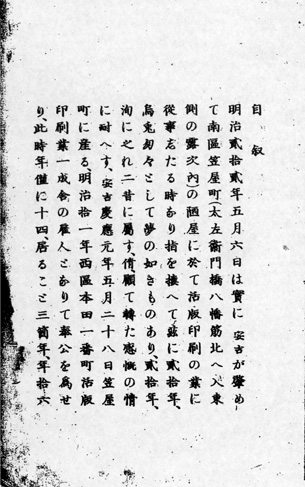 自叙
明治貳拾貳年五月六日は實に安吉が肇め
て南區笠屋町(太左衞門橋八幡筋北へ入東
側の露次内)の陋屋に於て活版印刷の業に
從事志たる時なり指を撓へて茲に貳拾年、
烏兎匆々として夢の如きものあり、貳拾年、
洵に之れ二昔に屬す、情顧て轉た感慨の情
に耐へす、安吉慶應元年五月二十八日笠屋
町に産る明治拾一年西區本田一番町活版
印刷業一成舍の雇人となりて奉公を爲せ
り、此時年僅に十四居ること三箇年、年拾六